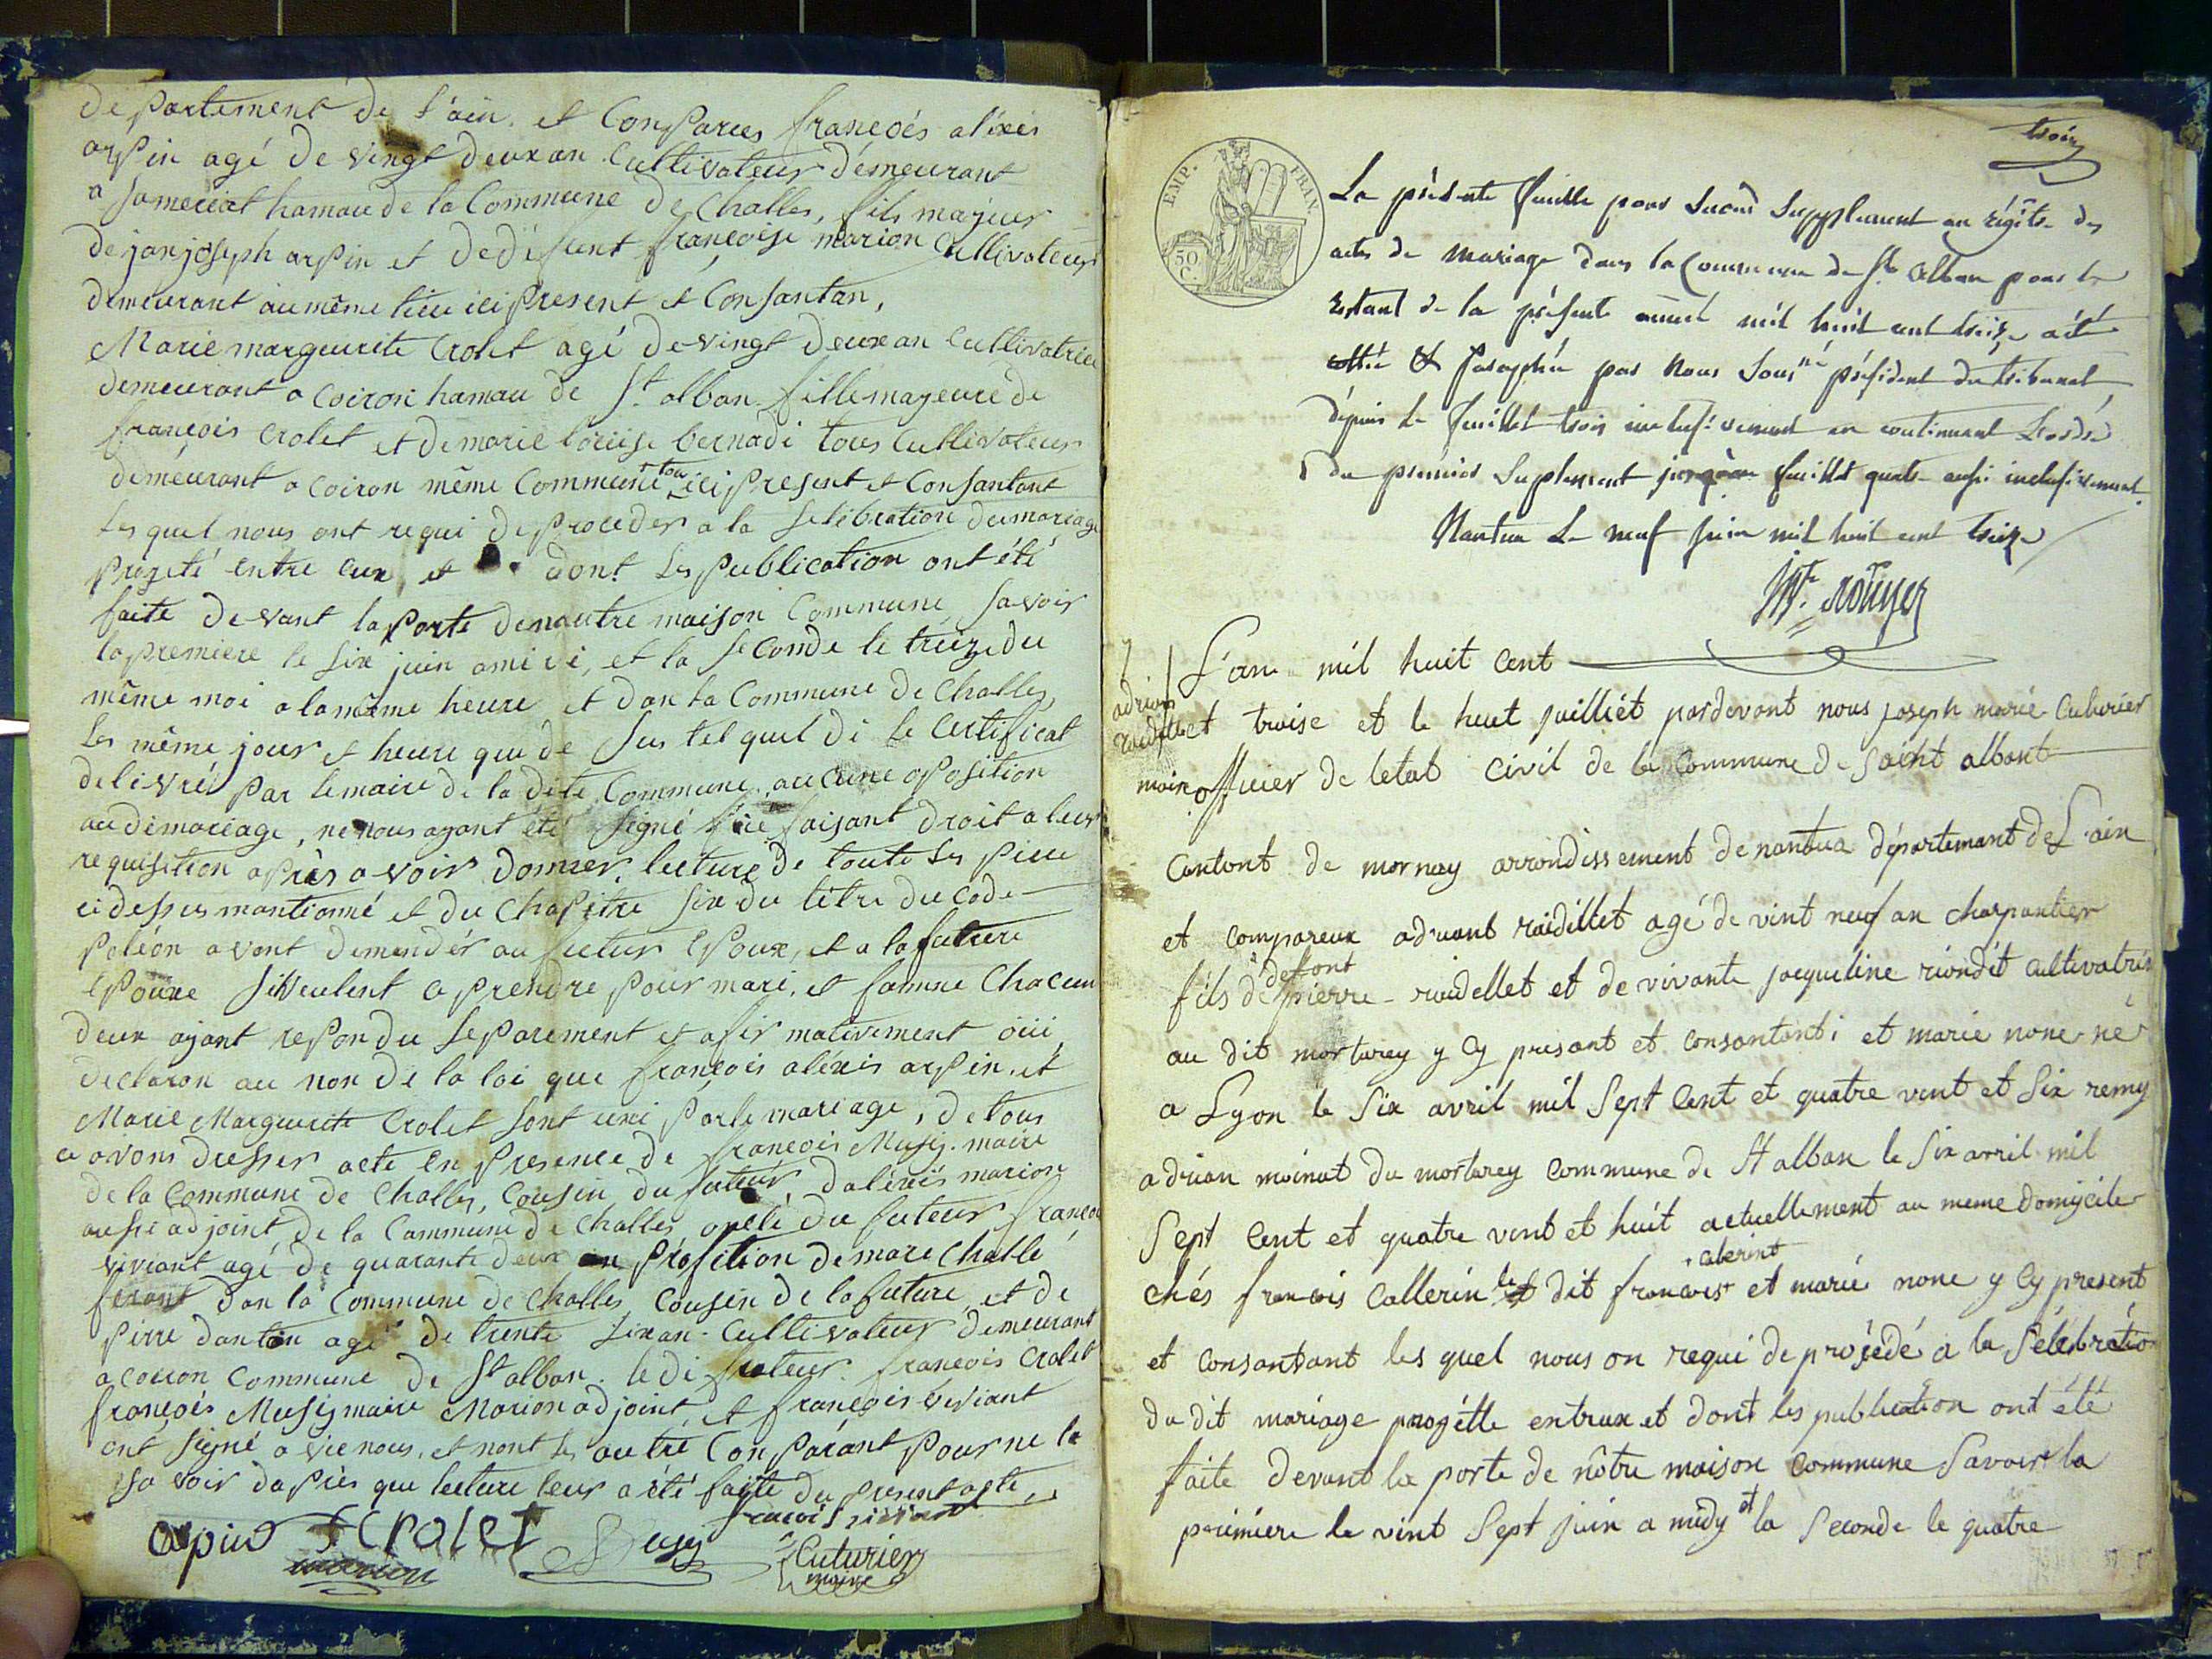 departement de l'ain. et Comparus francois aléxis
arpin agé de vingt deux an Cultivateur démeurant
a Sameriat hamau de la Commune de Challes, fils majeur
de jan joseph arpin et de défunt francoise marion Cultivateur
demeurant au même lieu ici present et Consantan,
Marie marguerite Crolet agé de vingt deux an Cultivatrice
demeurant a Coiron hamau de St. alban fille mayeure de
françois Crolet et de marie loüise bernadi tous Cultivateur
demeurant a Coiron même Commune tou ici present et Consantant
Les quel nous ont requi de proceder a la Selebration du mariage
progeté entre eux et dont Les publication ont été
faite devant la porte de nautre maison Commune Savoir
la premiere le Six juin a midi, et la Seconde le treize du
même moi a la même heure et dan la Commune de Challes,
Les même jour et heure que de Sus tel quel di le Certificat
delivré par le maire de la dite Commune, aucune oposition
au dimariage, ne nous ayant été Signé faisant droit a leur
requisition après avoir donner lecture de toute Les piece
ci dessus mantionné et du Chapitre Six du titre du Code
poléon avont demender au futur Epoux, et a la future
Epouxe Si veulent a prendre pour mari, et famme Chacun
deux ayant repondu Separement et afirmativement oüi,
declaron au non de la loi que françois aléxis arpin et
Marie Marguerite Crolet Sont uni par le mariage, de tous
ce avons dresser acte en presence de francois Musy. maire
de la Commune de Challes, Cousin du futeur, dalexis marion
aussi adjoint de la Commune de Challes oncle du futeur francoi
viviant agé de quarante deux an profition de mare Challe
ferant dan la Commune de Challes Cousin de la future, et de
pirre dantin agé de trente Six an. Cultivateur demeurant
a Coiron Commune de St alban. le di futeur. francois Crolet
françois Musy maire Marion adjoint, et francois viviant
ont Signé avie nous, et nont Les autre Comparant pour ne le
Savoir dapres que lecture leur a été faite du present acte,
francois viviant
arpin F Crolet Musy Cuturier
marion maire
trois
EMP. FRAN.
50 C.
La présente feuille pour Second Supplement au régitre des
actes de mariage dans la Commune de St. Alban pour le
restant de la présente année mil huit cent treize a été
cottée & Paraphée par Nous Sousné président du tribunal
depuis le feuillet trois inclusivement en continuant L'ordre
du premier Suplement jusqu'au feuillet quatre aussi inclusivement.
Nantua Le neuf juin mil huit cent treize
L'an mil huit Cent
adrian
raidellet
et traise et le huet juilliet pardevant nous joseph marie Cuturier
maire officier de letat civil de la Commune de saint albant
Cantont de mornay arrondissement de nantua départemant de L'ain
et compareux adriant raidillet agé de vint neuf an charpantier
fils de defont pierre raidellet et de vivante jacqueline riondét cultivatris
au dit mortarey y Cy presant et Consantant; et marie none né
a Lyon le Six avril mil Sept Cent et quatre vint et Six remy
adrian moinat du mortarey Commune de St alban le Six avril mil
Sept Cent et quatre vint et huit actuellement au meme domicile
chés francois Callerin le dit francois calerint et marie none y Cy present
et Consantant les quel nous on requi de projédé a la Sélébration
du dit mariage progétte entreux et dont les publication ont été
faite devant la porte de nôtre maison Commune Savoir la
primiere le vint Sept juin a midy et la Seconde le quatre